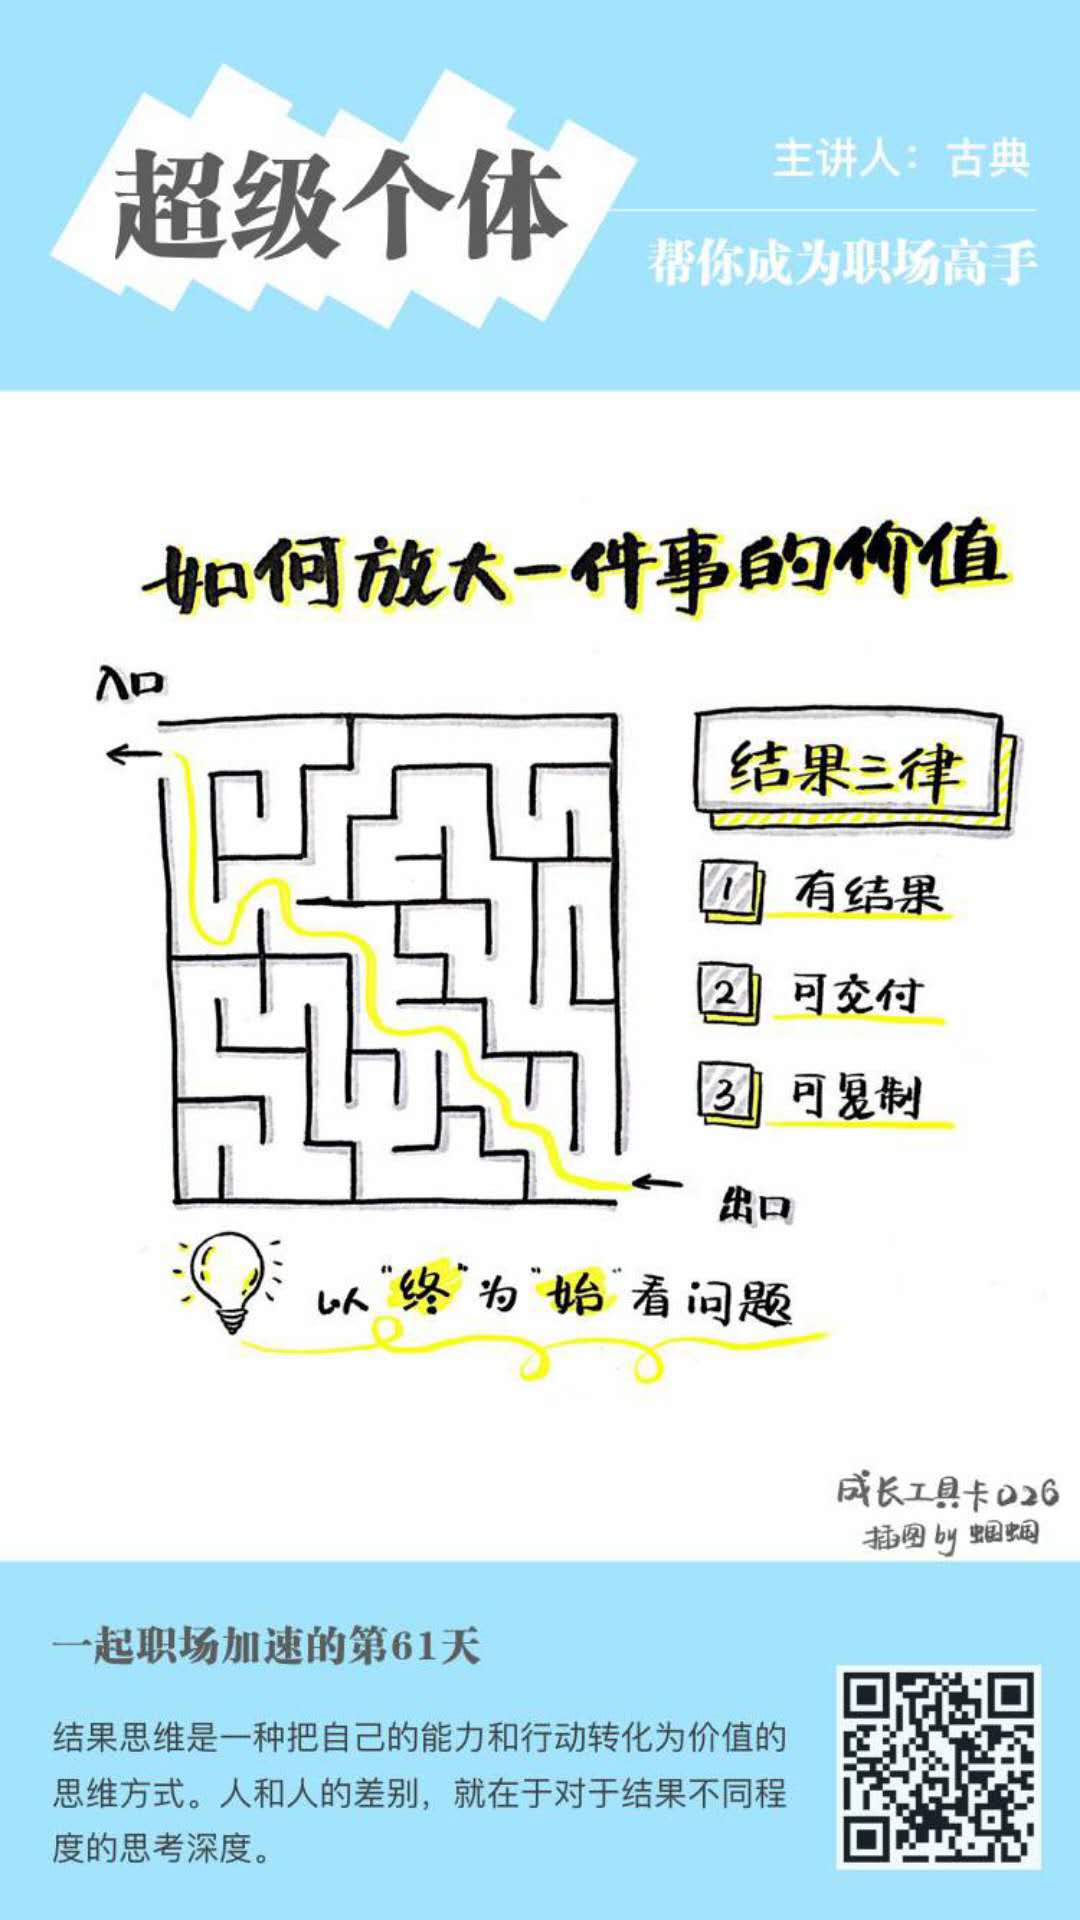 超级个体
主讲人：古典
帮你成为职场高手
如何放大一件事的价值
入口
结果三律
1 有结果
2 可交付
3 可复制
出口
以“终”为“始”看问题
成长工具卡026
插图by 蝈蝈
一起职场加速的第61天
结果思维是一种把自己的能力和行动转化为价值的
思维方式。人和人的差别，就在于对于结果不同程
度的思考深度。